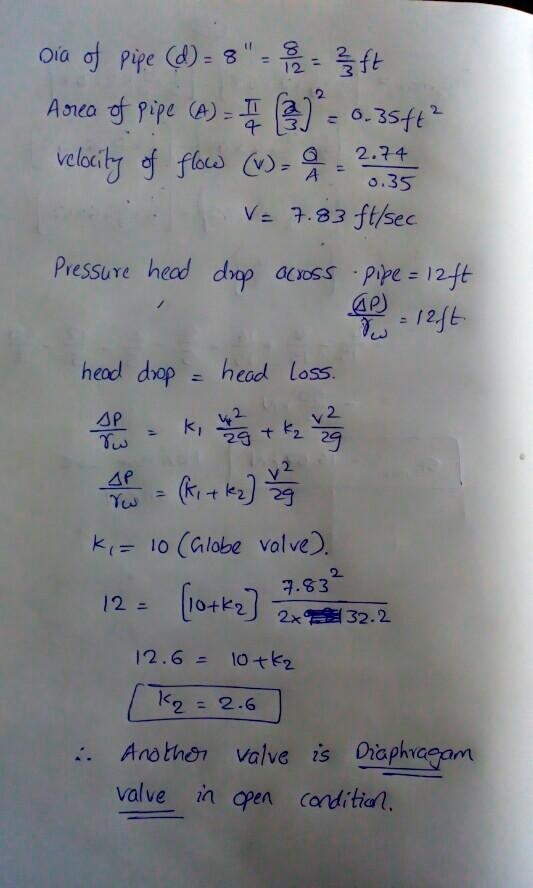 Dia of pipe (d) = 8" = 8/12 = 2/3 ft
Area of pipe (A) = π/4 (2/3)² = 0.35ft²
velocity of flow (v) = Q/A = 2.74/0.35
V = 7.83 ft/sec
Pressure head drop across pipe = 12ft
(ΔP)/γw = 12ft
head drop = head loss.
ΔP/γw = K₁ v²/2g + K₂ v²/2g
ΔP/γw = (K₁ + K₂) v²/2g
K₁ = 10 (Globe valve).
12 = [10+K₂] 7.83²/2x 32.2
12.6 = 10 + K₂
K₂ = 2.6
∴ Another valve is Diaphragam
valve in open condition.